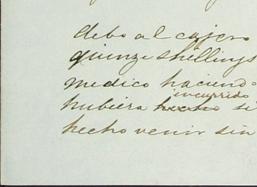 debo al cajero
quinze shellings
medico haciendo
incurrido
hubiera hecho si
hecho venir sin